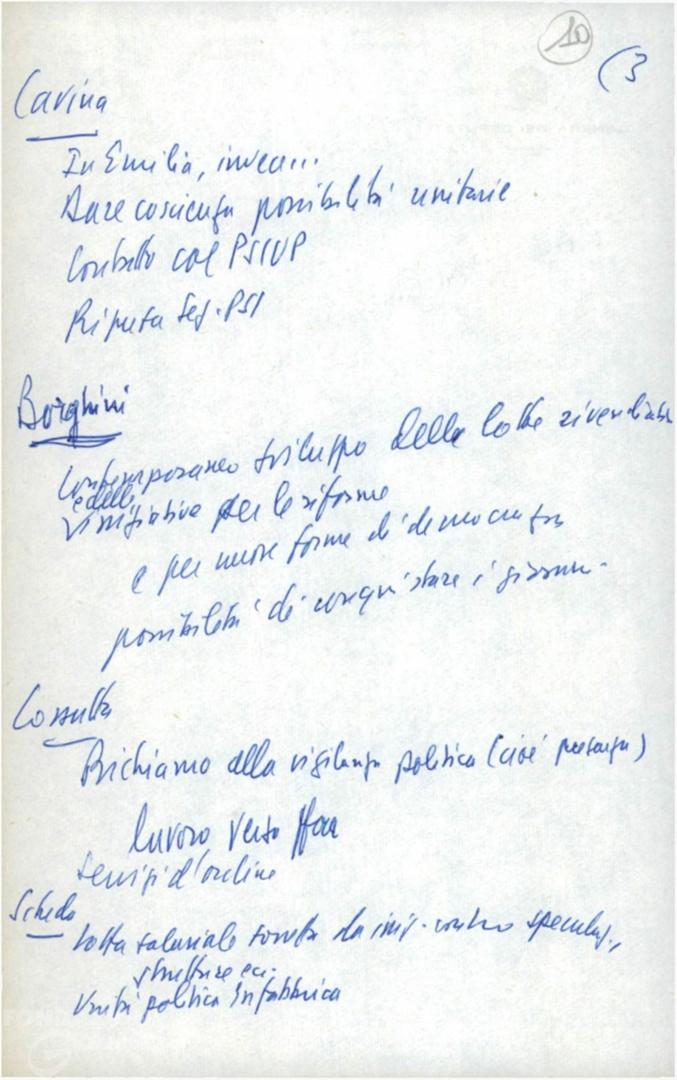 10
(3
Cavina
In Emilia, invece...
Dare coscienza possibilità unitarie
Contatto col PSIUP
Ripresa Seg. PSI
Borghini
Contemporaneo sviluppo delle lotte rivendicative
e delle
iniziative per le riforme
e per nuove forme di democrazia
possibilità di conquistare i giovani.
Cossutta
Richiamo alla vigilanza politica (cioè presenza)
lavoro verso
Servizi d'ordine
Scheda
Lotta salariale sorretta da iniz. contro speculaz.,
strutture ecc.
Unità politica in fabbrica